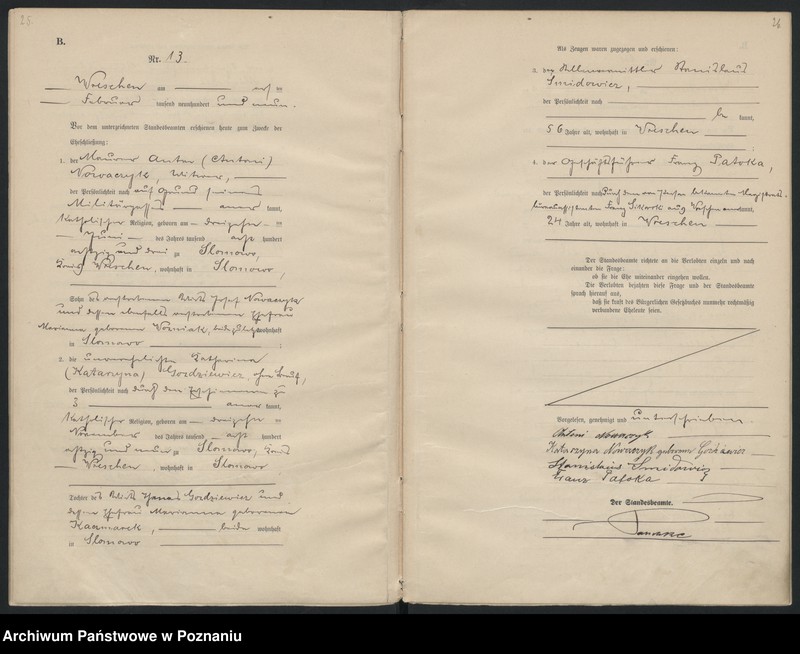 25.
B.
Nr. 13.
Wreschen am
Februar tausend neunhundert und neun.
Vor dem unterzeichneten Standesbeamten erschienen heute zum Zwecke der
Eheschließung:
1. der Maurer Anton (Antoni)
Nowaczyk, Witwer,
der Persönlichkeit nach auf Grund seines
Militärpasses anerkannt,
katholischer Religion, geboren am dreizehn
Juni des Jahres tausend acht hundert
achtzig und drei zu Slomowo,
Kreis Wreschen, wohnhaft in Slomowo,
Sohn des verstorbenen Wirts Josef Nowaczyk
und dessen ebenfalls verstorbenen Ehefrau
Marianna geborenen Wozniak, beide zuletzt wohnhaft
in Slomowo ;
2. die unverehelichte Katharina
(Katarzyna) Gozdziewicz, ohne Beruf,
der Persönlichkeit nach durch den Zeugen zu
3 anerkannt,
katholischer Religion, geboren am dreizehn
November des Jahres tausend acht hundert
achtzig und neun zu Slomowo, Kreis
Wreschen, wohnhaft in Slomowo
Tochter des Wirts Gozdziewicz und
dessen Ehefrau Marianna geborenen
Kaczmarek, beide wohnhaft
in Slomowo
26
Als Zeugen waren zugezogen und erschienen:
3. der Stellenvermittler Stanislaus
Smidowicz,
der Persönlichkeit nach
be kannt,
56 Jahre alt, wohnhaft in Wreschen
;
4. der Geschäftsführer Franz Patoka,
der Persönlichkeit nach durch den von Person bekannten
Franz aus Wreschen anerkannt,
24 Jahre alt, wohnhaft in Wreschen
Der Standesbeamte richtete an die Verlobten einzeln und nach
einander die Frage:
ob sie die Ehe miteinander eingehen wollen.
Die Verlobten bejahten diese Frage und der Standesbeamte
sprach hierauf aus,
daß sie kraft des Bürgerlichen Gesetzbuches nunmehr rechtmäßig
verbundene Eheleute seien.
Vorgelesen, genehmigt und unterschrieben
Antoni Nowaczyk
Katarzyna Nowaczyk geborene Goździewicz
Stanislaus Smidowicz
Franz Patoka
Der Standesbeamte.
Archiwum Państwowe w Poznaniu